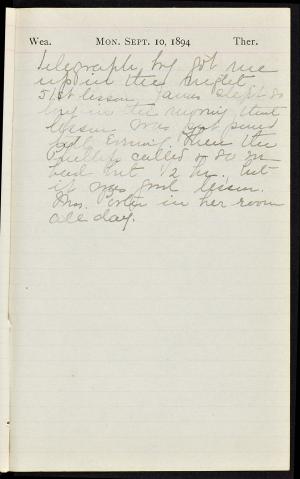 Wea. MON. SEPT. 10, 1894 Ther.
Telegraph boy got me
up in the night
51st lesson. James slept so
late in the morning that
lesson was not
till Evening. Then the
Phillips called & so we
had but 1/2 hr., but
it was good lesson.
Mrs. Porter in her room
all day.